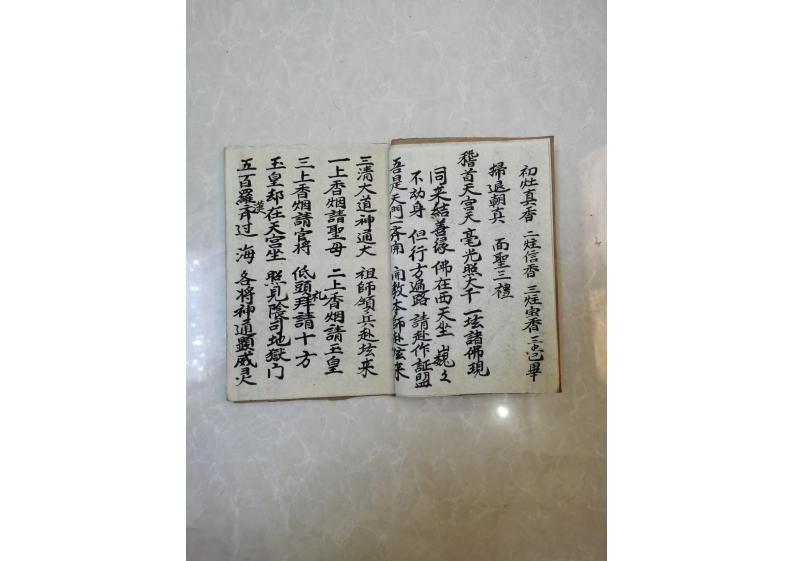 初炷真香 二炷信香 三炷宝香 三炷香畢
掃退朝真 面聖三禮
稽首天宮天 毫光照大千 一坛諸佛現
同来結善缘 佛在西天坐 巍々
不动身 但行方遍路 請赴作証盟
吾是天門一齐開 開教本師赴坛来
三清大道神通大 祖師領兵赴坛来
一上香烟請聖母 二上香烟請玉皇
三上香烟請官将 低頭拜礼請十方
玉皇却在天宮坐 照見陰司地獄门
五百羅漢齐过海 各将神通顕威灵